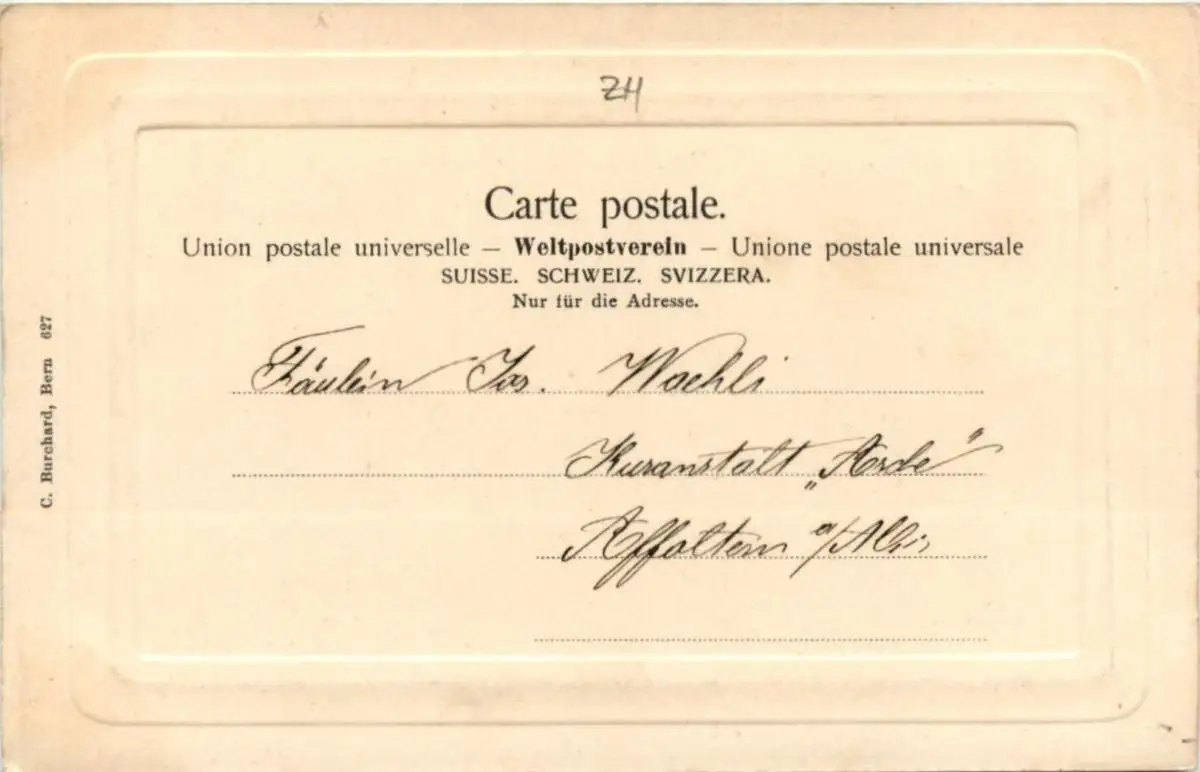 ZH
Carte postale.
Union postale universelle — Weltpostverein — Unione postale universale
SUISSE. SCHWEIZ. SVIZZERA.
Nur für die Adresse.
Fräulein Jos. Waehli
Kuranstalt „Arche"
Affoltern a/Albis
C. Burchard, Bern 627